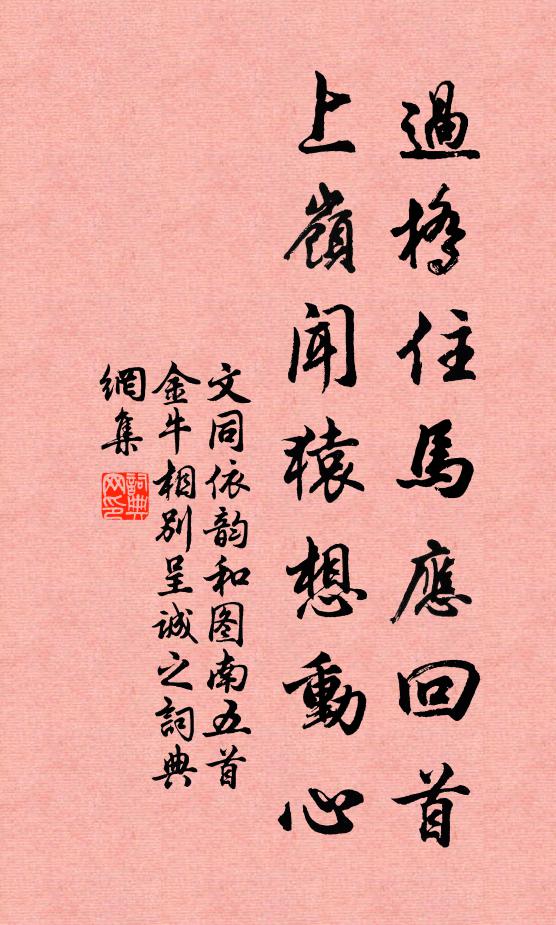 過橋住馬應回首
上嶺聞猿想動心
文同依韵和图南五首
金牛相別呈誠之詞典
網集
詞典网印